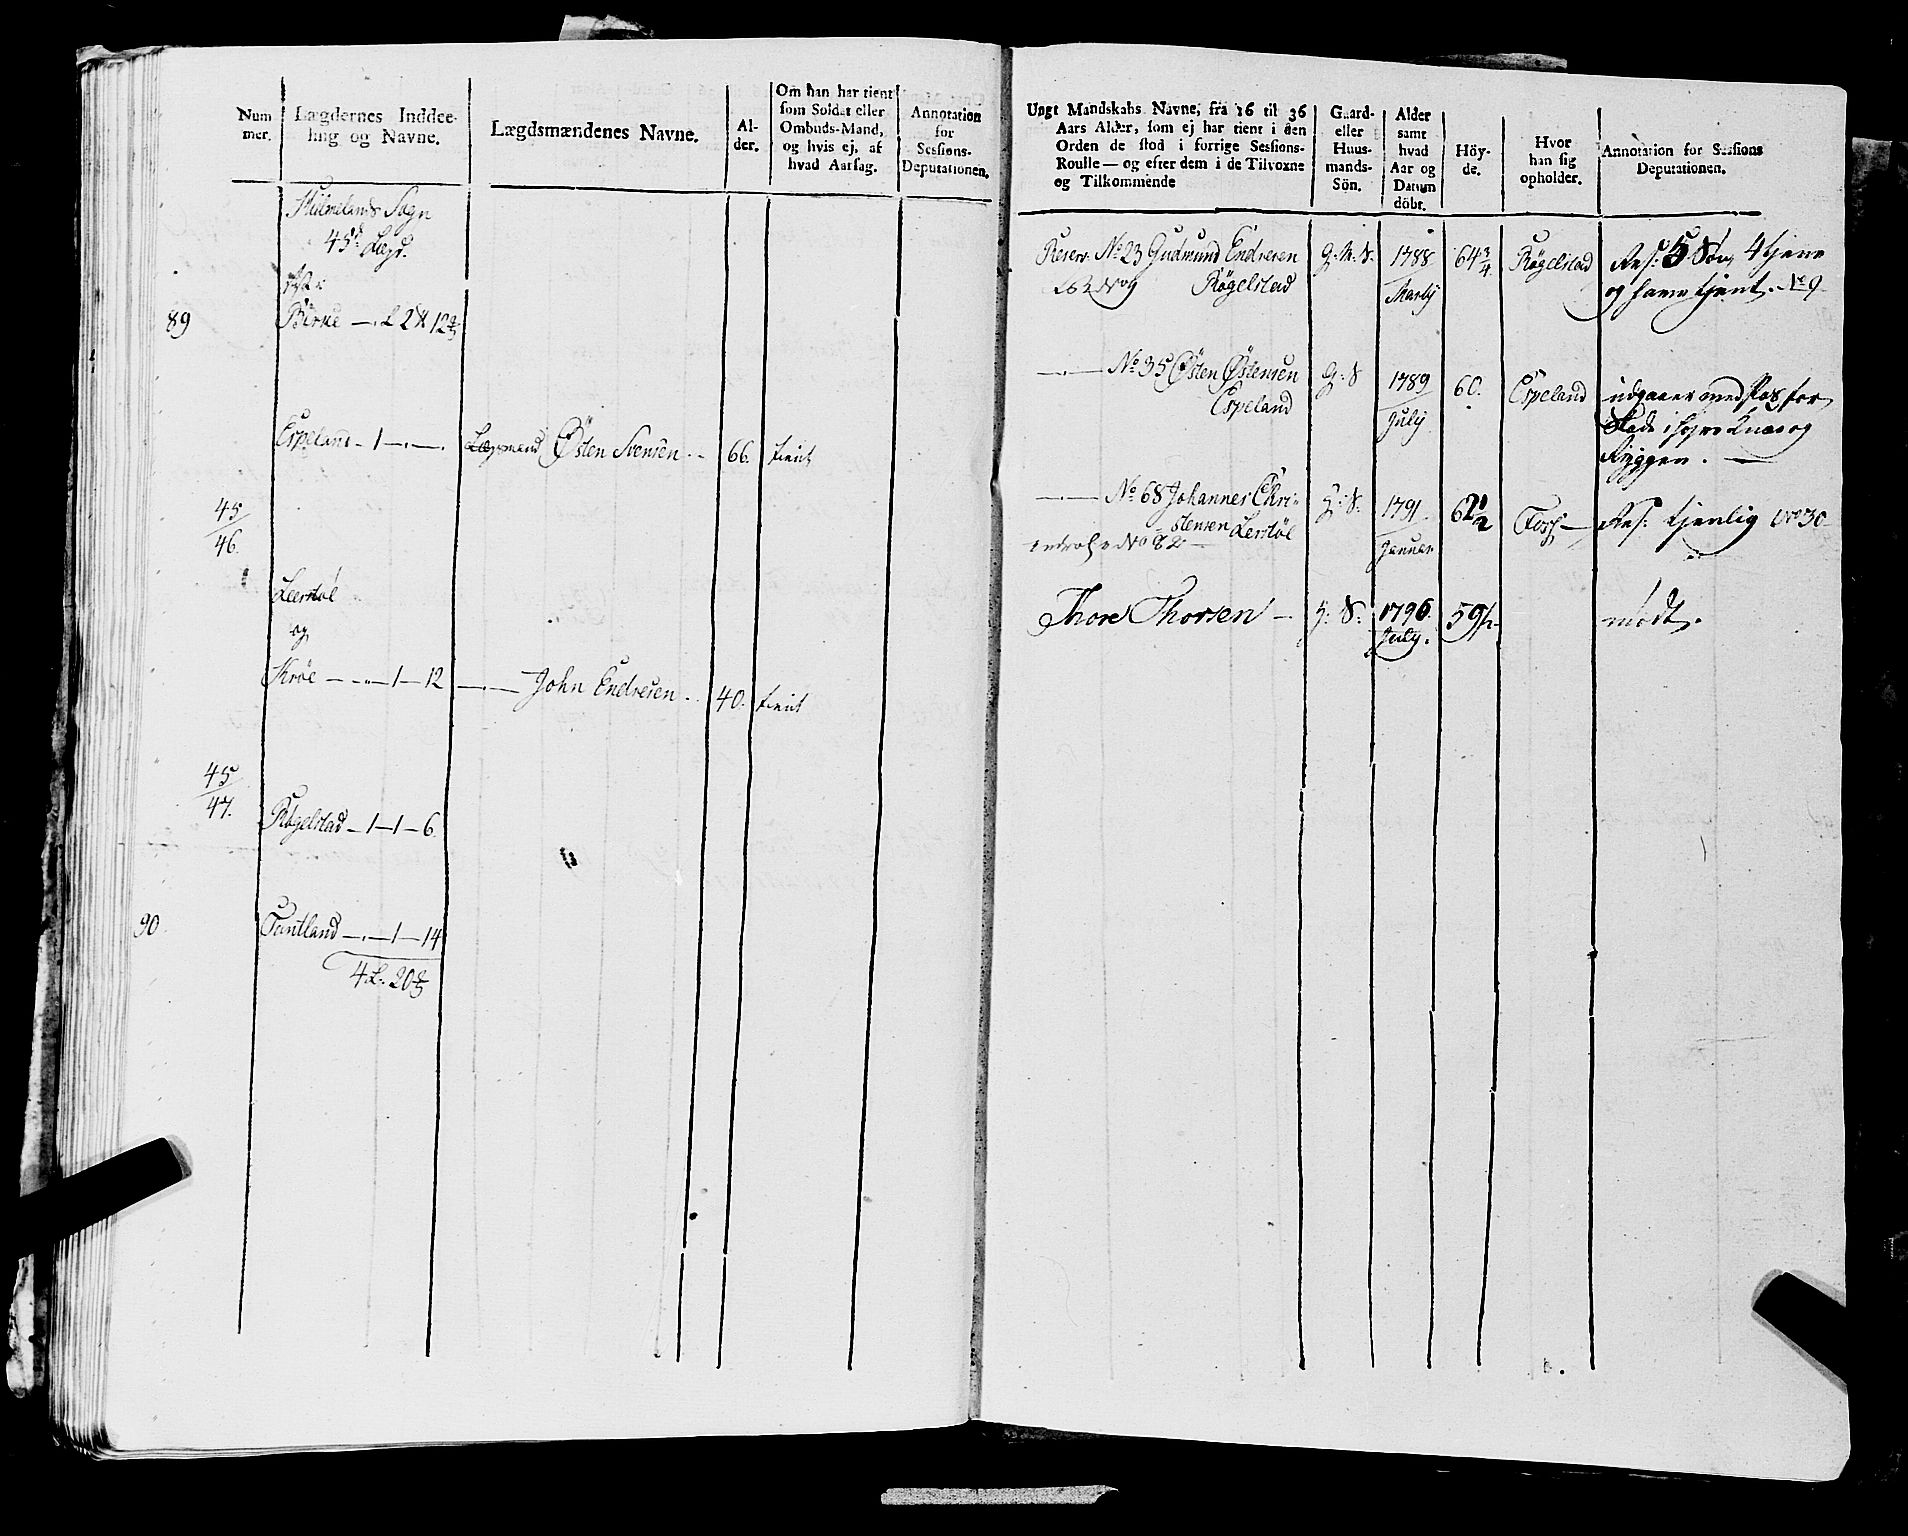 Num
mer.
Lægdernes Inddee-
ling og Navne.
Lægdsmændenes Navne.
Al-
der.
Om han har tient
som Soldat eller
Ombuds-Mand,
og hvis ej, af
hvad Aarsag.
Annotation
for
Sessions-
Deputationen.
Hielmelands Sogn
45de Lægd.
89
Birke
Espeland - 1 -.-
Lægsmand Østen Svensen
66.
tient
45
46.
Leerstøl
og
Krøe - - „ - 1 - 12
John Endresen
40.
tient
45
47.
Røgelstad - 1 - 1 - 6
90
Tantland -.- 1 - 14
4 L. 20 2/3
Ungt Mandskabs Navne, fra 16 til 36
Aars Alder, som ej har tient i den
Orden de stod i forrige Sessions-
Roulle — og efter dem i de Tilvoxne
og Tilkommende
Gaard-
eller
Huus-
mands-
Sön.
Alder
samt
hvad
Aar og
Datum
döbt.
Höy-
de.
Hvor
han sig
opholder.
Annotation for Sessions
Deputationen.
Reserv. No 23 Gudmund Endresen
Røgelstad
1788
Martij
64 3/4
Røgelstad
Res: 5 Søn, 4 tjene
og have tjent. No 9
No 35 Østen Østensen
Espeland
G. S
1789
July
60.
Espeland
udgaaer med Pas for
Skade i høyre Knæe og
Ryggen.
No 68 Johannes Chri-
stensen Lerstøl
No 82
G. S.
1791
Januar
62 1/2
Foss
Res: tjenlig No 30
Thore Thorsen
G. S:
1796.
July.
59 1/2
mødt.